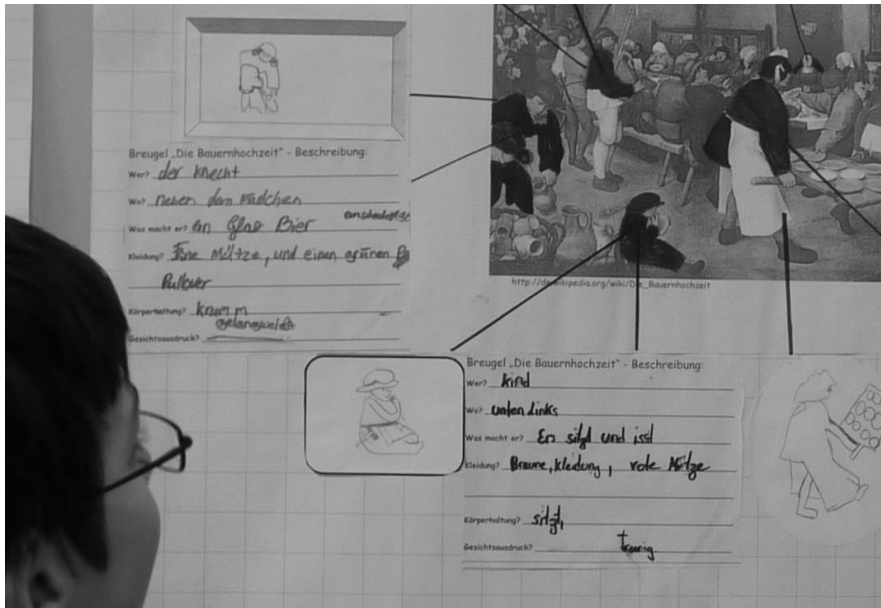 Breugel „Die Bauernhochzeit" - Beschreibung:
Wer? der Knecht
Wo? neben dem Mädchen
Was macht er? ein Glas Bier
Kleidung? Eine Mütze, und einen grünen
Pullover
Körperhaltung? krumm
gelangweilt
Gesichtsausdruck?
http://de.wikipedia.org/wiki/Die_Bauernhochzeit
Breugel „Die Bauernhochzeit" - Beschreibung:
Wer? kind
Wo? unten Links
Was macht er? Er sitzt und isst
Kleidung? Braune, kleidung, rote Mütze
Körperhaltung? sitzt,
Gesichtsausdruck? traurig